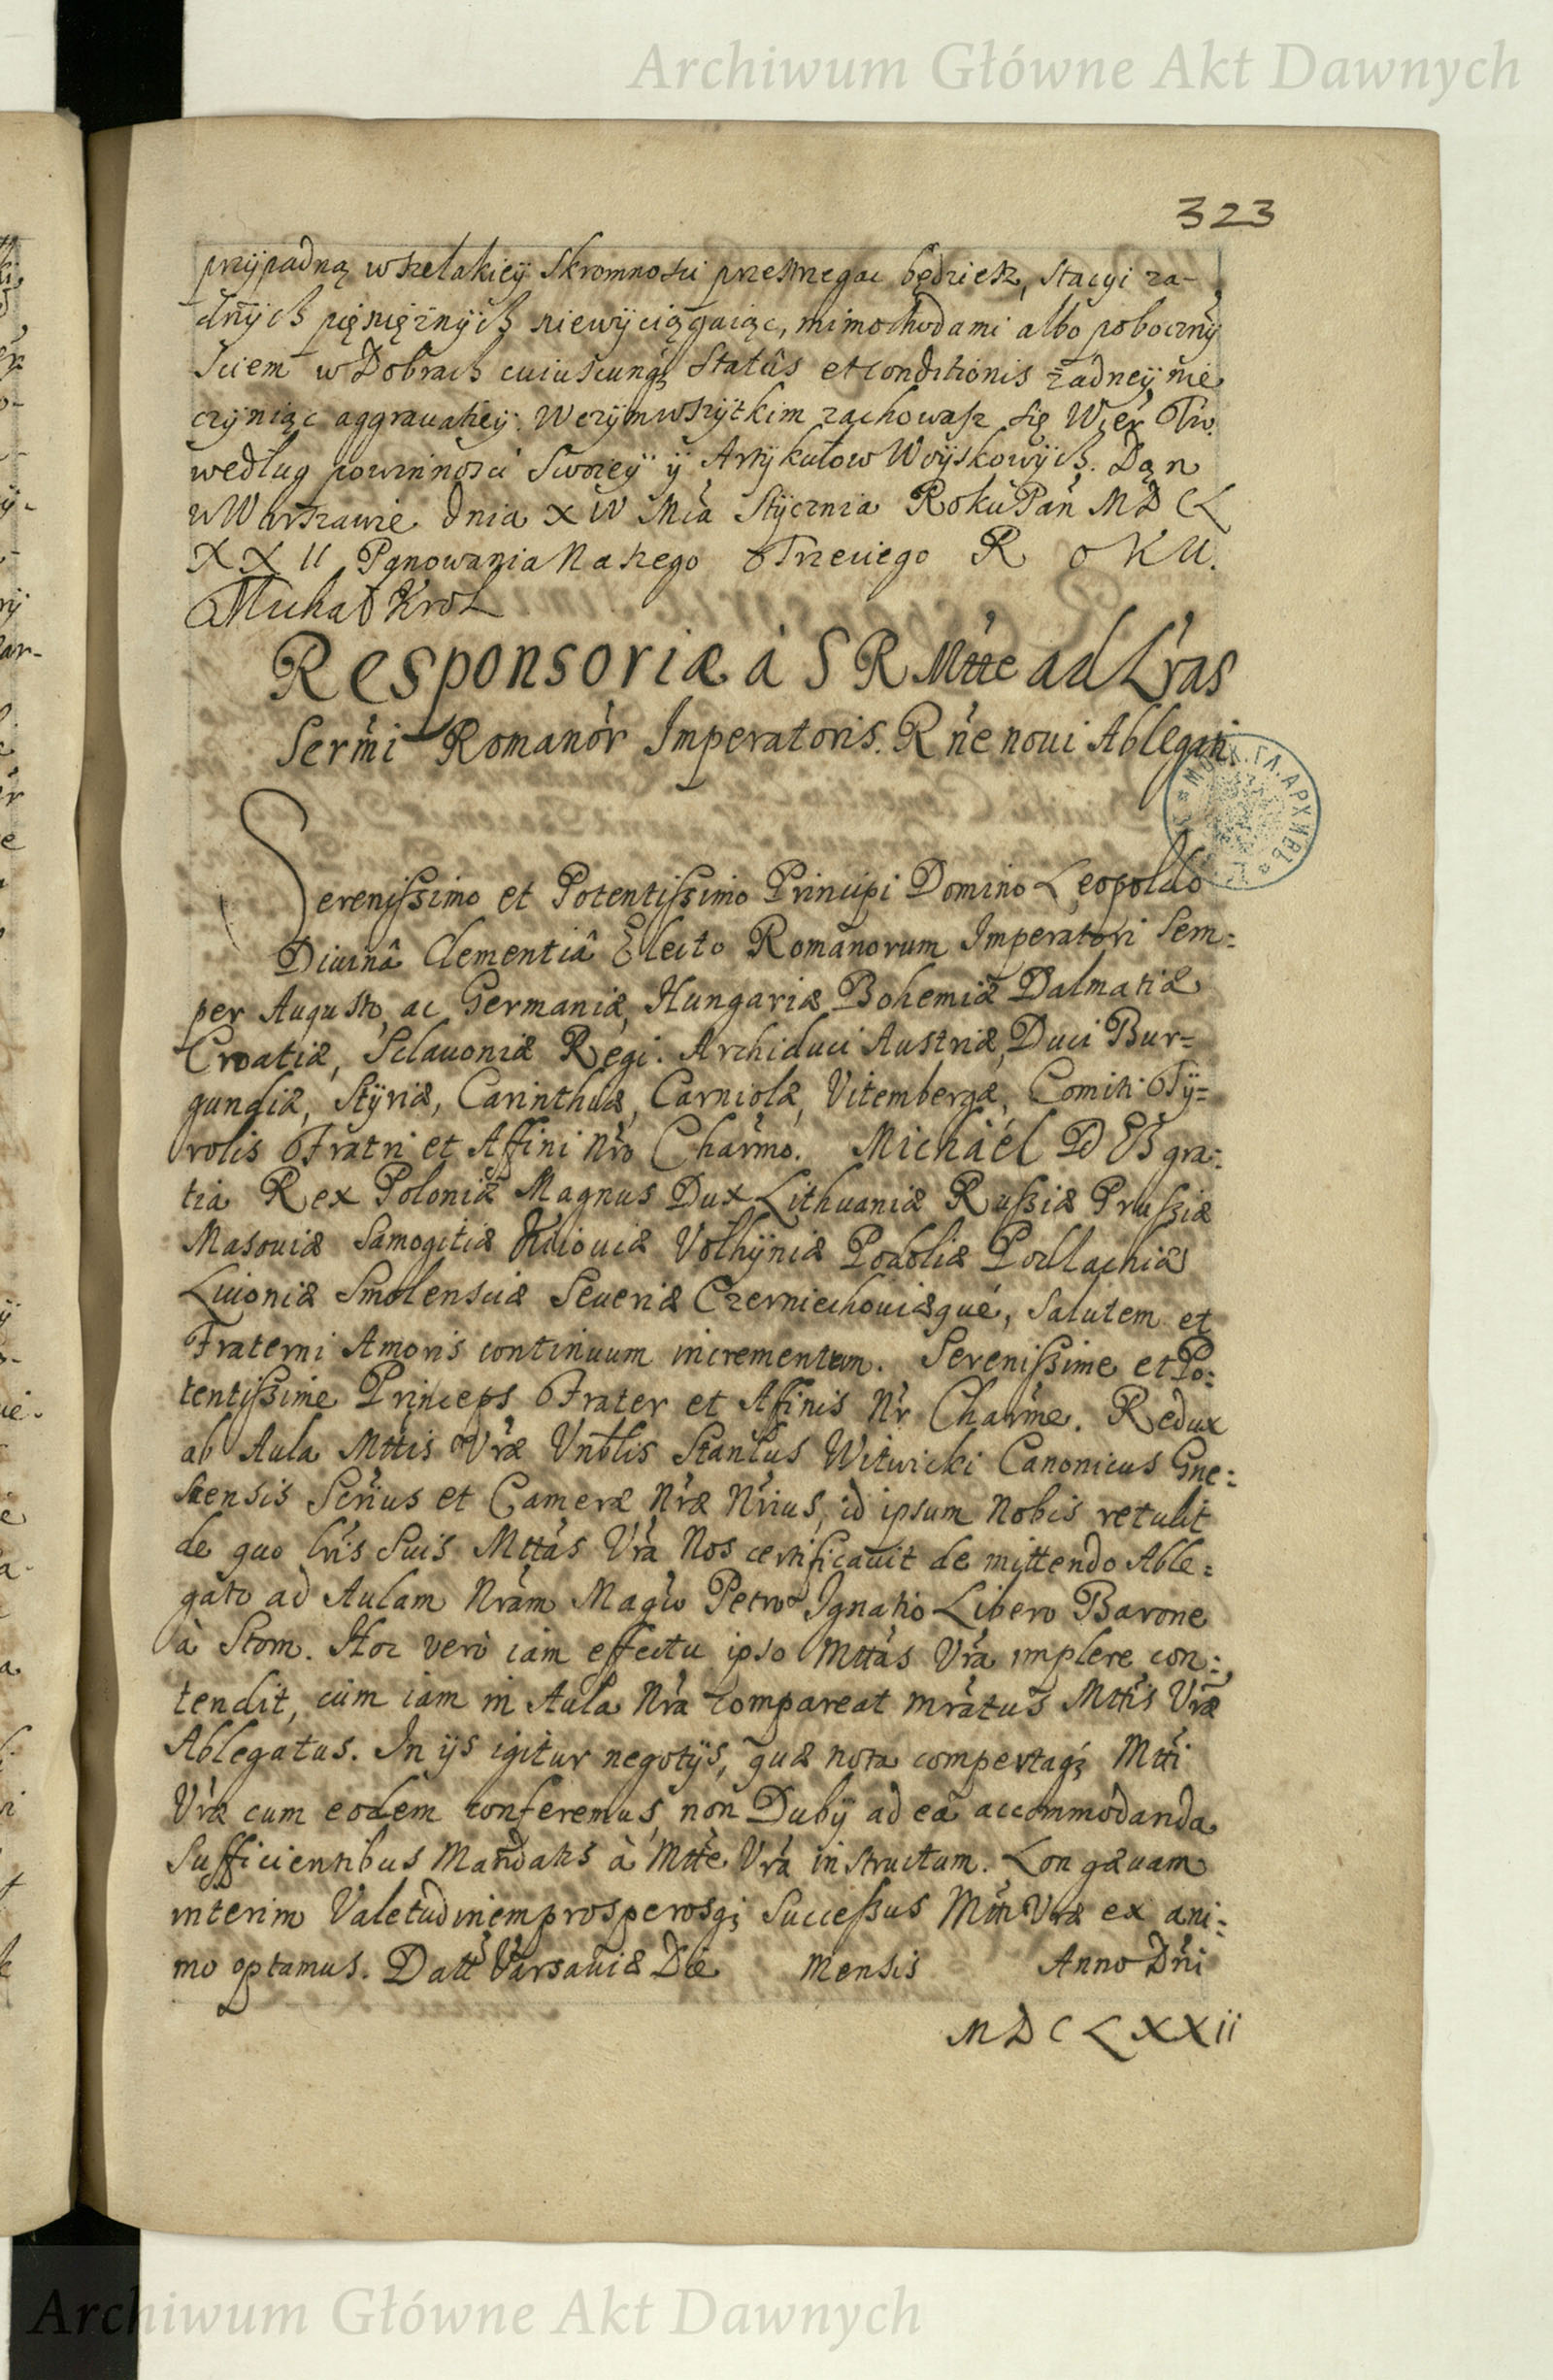 Archiwum Główne Akt Dawnych
323
przypadną wszelakiey skromnosci przestrzegac będziesz, stacyi ża-
dnych pięniężnÿch niewÿciągaiąc, mimochodami albo pobocznÿ
sciem w Dobrach cuiuscunq; Statûs et conditionis żadneÿ nie
czÿniąc aggrauatieÿ. W czÿm wszÿtkim zachowasz się Wier Tw.
według powinnosci Swoieÿ ÿ Artÿkułow Woÿskowÿch. Dąn
w Warszawie dnia XIV Mca Stÿcznia Roku Pań MDCL
XXII Pąnowania Naszego Trzeciego ROKU.
Michał Krol
Responsoriæ à S R Mtte ad Lras
Sermi Romanor Imperatoris. Rne noui Ablegati.
МОСК. ГЛ. АРХИВЪ
Serenissimo et Potentissimo Principi Domino Leopoldo
Diuinâ Clementiâ Electo Romanorum Imperatori Sem:
per Augusto, ac Germaniæ, Hungariæ Bohemiæ Dalmatiæ
Croatiæ, Sclauoniæ Regi. Archiduci Austriæ, Duci Bur=
gundiæ, Stÿriæ, Carinthiæ, Carniolæ, Vitembergæ, Comiti Tÿ=
rolis Fratri et Affini Nro Charmo. Michaél D G gra:
tia Rex Poloniæ Magnus Dux Lithuaniæ Russiæ Prussiæ
Masouiæ Samogitiæ Kiiouiæ Volhÿniæ Podoliæ Podlachiæ
Liuoniæ Smolensciæ Seueriæ Czerniechouiæqué, Salutem et
Fraterni Amoris continuum incrementum. Serenissime et Po:
tentissime Princeps Frater et Affinis Nr Charme. Redux
ab Aula Mttis Vræ Vnblis Stanlus Witwicki Canonicus Gne:
snensis Scrius et Cameræ Nræ Nrius, id ipsum Nobis retulit
de quo lris Suis Mttas Vra Nos certificauit de mittendo Able:
gato ad Aulam Nram Magco Petro Ignatio Libero Barone
à Stom. Hoc verò iam effectu ipso Mttas Vra implere con:
tendit, cùm iam in Aula Nra compareat mratus Mttis Vræ
Ablegatus. In ijs igitur negotÿs, quæ nota compertaq; Mtti
Vræ cum eodem conferemus, non Dubÿ ad ea accommodanda
Sufficientibus Mandatis à Mtte Vra instructum. Longæuam
interim Valetudinem prosperosq; Successus Mtti Vræ ex ani:
mo optamus. Datt Varsauiæ Die mensis Anno Dni
MDCLXXii
Archiwum Główne Akt Dawnych